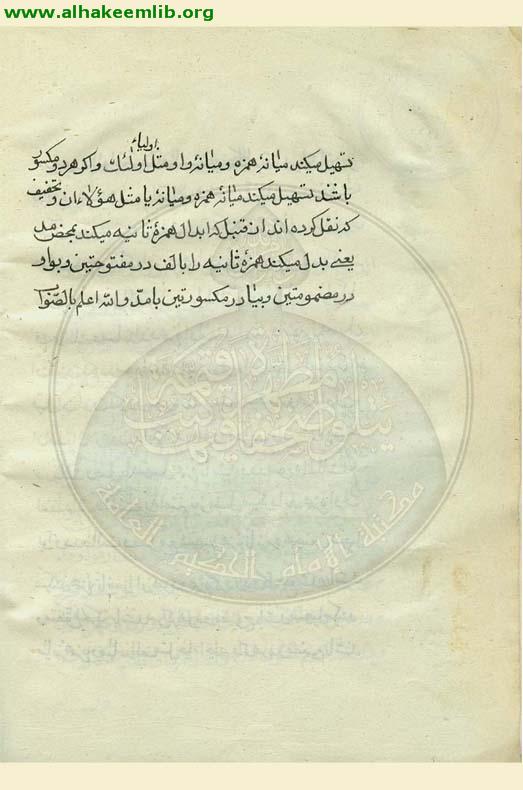 www.alhakeemlib.org
اولیاء
تسهیل میکند میانهٔ همزه و میانهٔ واو مثل اولئك و اکر هر دو مکسور
باشد تسهیل میکند میانهٔ همزه و میانهٔ یا مثل هؤلاء ان و تخفیف
که نقل کرده اند از قنبل که ابدال همزهٔ ثانیه میکند بمحض مد
یعنی بدل میکند همزهٔ ثانیه را بالف در مفتوحتین و بواو
در مضمومتین و بیا در مکسورتین با مدّ والله اعلم بالصّواب
مكتبة الإمام الحكيم العامة
يتلو صحفا مطهرة فيها كتب قيمة